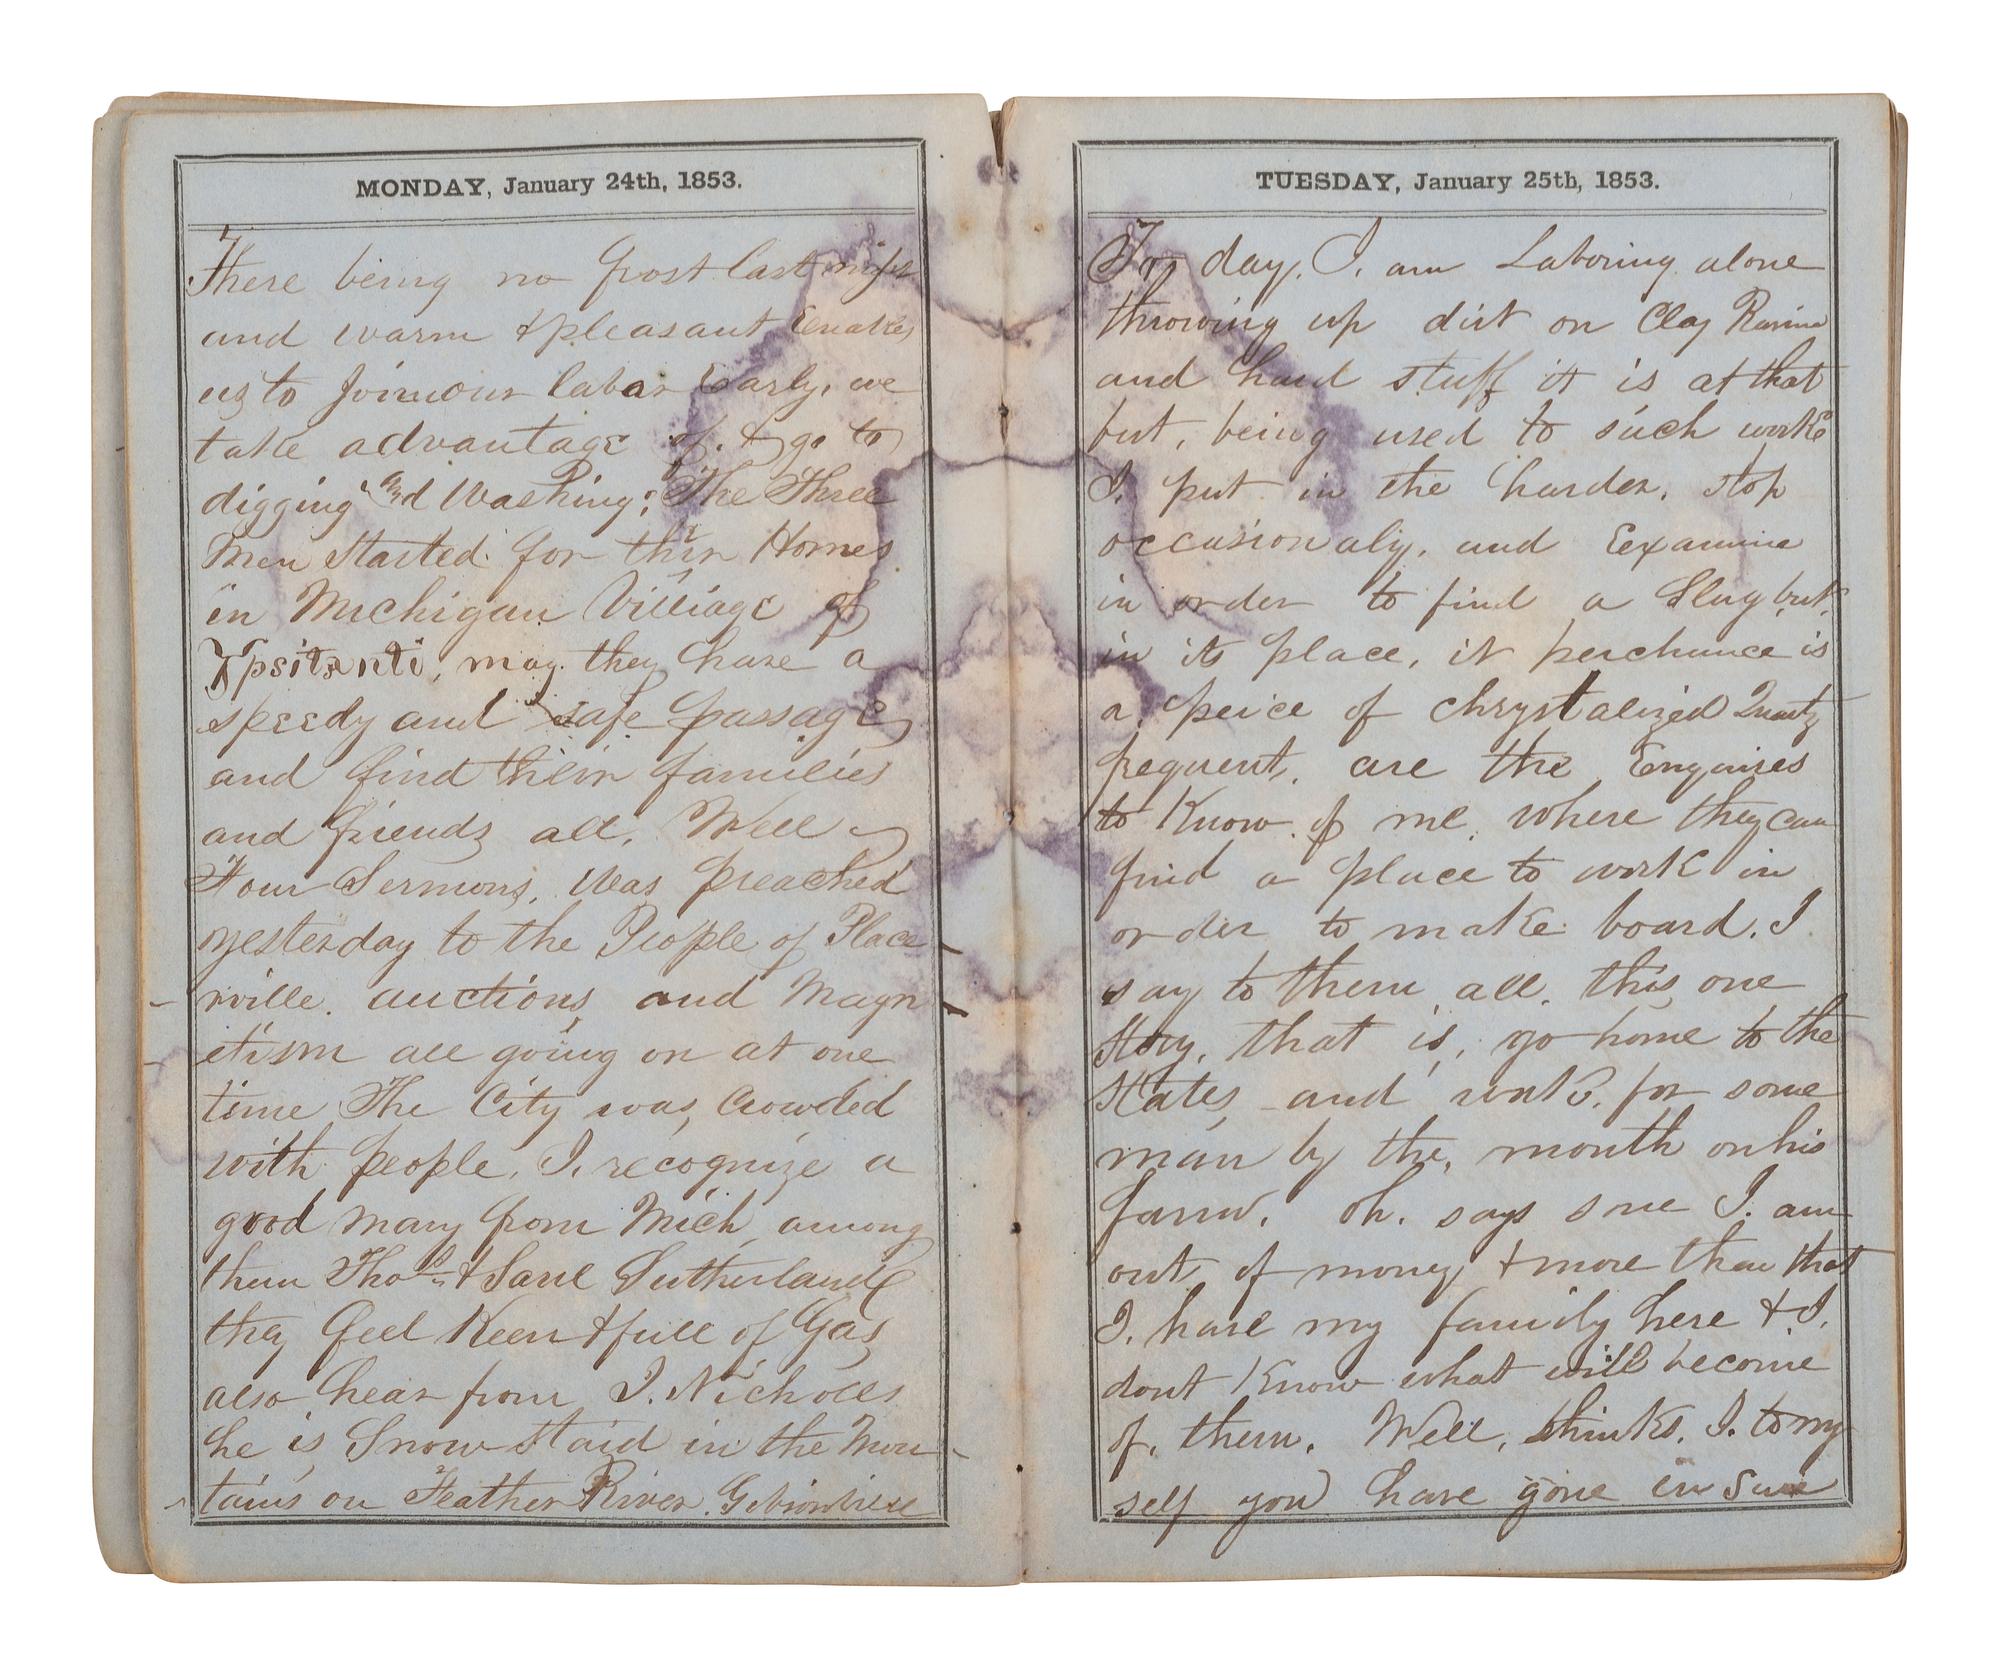 MONDAY, January 24th, 1853.
There being no frost last night
and warm & pleasant Enables
us to Join our labor Early, we
take advantage of. & go to
digging and Washing; The Three
Men Started for thir Homes
in Michigan Village of
Ypsitanti, may they have a
speedy and safe passage
and find their families
and friends all. Well
Four Sermons, Was preached
yesterday to the People of Place
rville. auctions and Magn
etism all going on at one
time The City was, Crowded
with people, I. recognize a
good many from Mich, among
them Thos & Sarl Sutherland
they feel Keen & full of Gas
also hear from I. Nicholls
he is Snow Staid in the Moun
tains on Feather River.
TUESDAY, January 25th, 1853.
To day, I. am Laboring alone
throwing up dirt on Clay Ravine
and hard stuff it is at that
but, being used to such worke
I. put in the harder, stop
occasionaly, and Eexamine
in order to find a Slug but,
in its place, it perchance is
a, peice of chrystalized Quartz
frequent, are the Enquires
to Know of me where they can
find a place to work in
order to make board. I
say to them all. this one
Story, that is, go home to the
States and work, for some
man by the, month on his
farm. oh. says one I. am
out of money & more than that
I. have my family here & I.
dont Know what will become
of, them. Well, thinks, I. to my
self you have gone in Sure